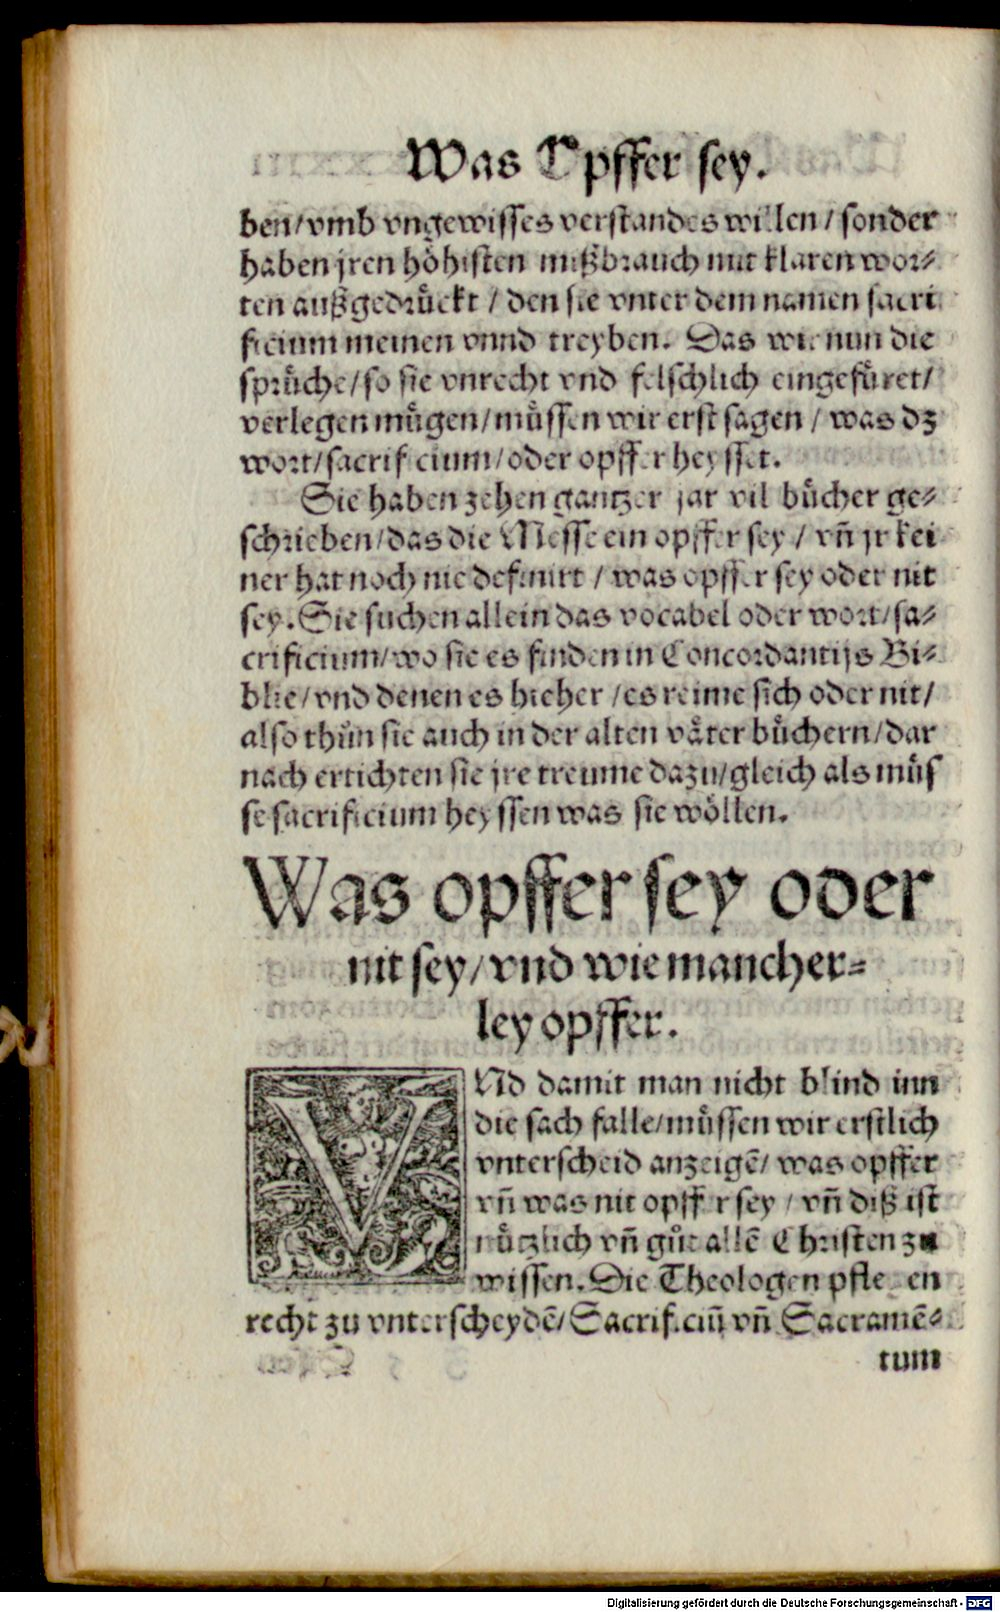 Was Opffer sey.
ben/vmb vngewisses verstandes willen/sonder
haben jren höhisten mißbrauch mit klaren wor⸗
ten außgedrückt/den sie vnter dem namen sacri
ficium meinen vnnd treyben. Das wir nun die
sprüche/so sie vnrecht vnd felschlich eingefüret/
verlegen mügen/müssen wir erst sagen/was dz
wort/sacrificium/oder opffer heysset.
Sie haben zehen gantzer jar vil bücher ge⸗
schrieben/das die Messe ein opffer sey/vñ jr kei
ner hat noch nie definirt/was opffer sey oder nit
sey. Sie suchen allein das vocabel oder wort/sa⸗
crificium/wo sie es finden in Concordantijs Bi⸗
blie/vnd denen es hieher/es reime sich oder nit/
also thůn sie auch in der alten väter büchern/dar
nach ertichten sie jre treume dazu/gleich als müs
se sacrificium heyssen was sie wöllen.
Was opffer sey oder
nit sey/vnd wie mancher⸗
ley opffer.
VNd damit man nicht blind inn
die sach falle/müssen wir erstlich
vnterscheid anzeigē/was opffer
vñ was nit opffer sey/vñ diß ist
nützlich vñ gůt allē Christen zu
wissen. Die Theologen pflegen
recht zu vnterscheydē/Sacrificiū vñ Sacramē⸗
tum
Digitalisierung gefördert durch die Deutsche Forschungsgemeinschaft - DFG